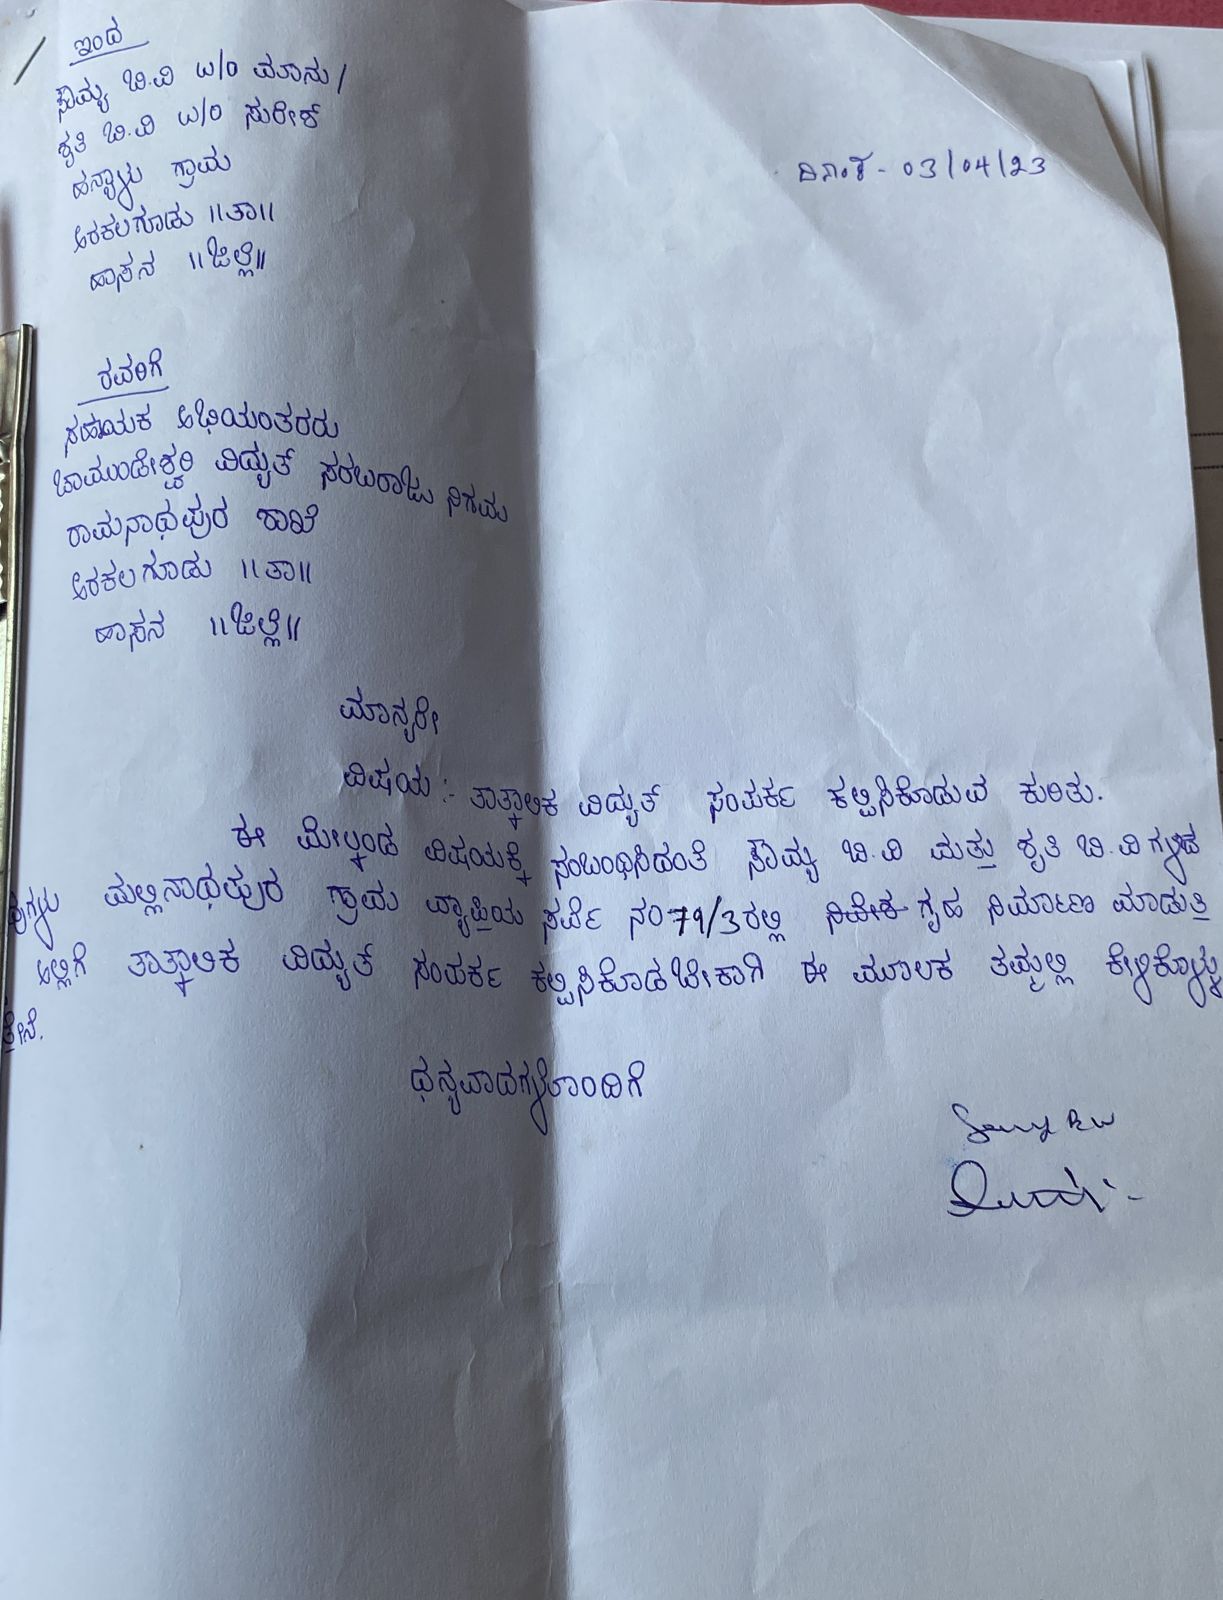 ಇಂದ
ಸೌಮ್ಯ ಬಿ.ವಿ W/O ಮಾನು/
ಕೃತಿ ಬಿ.ವಿ W/O ಸುರೇಶ್
ಹನ್ಯಾಳು ಗ್ರಾಮ
ಅರಕಲಗೂಡು ||ತಾ||
ಹಾಸನ ||ಜಿಲ್ಲೆ||
ದಿನಾಂಕ - 03/04/23
ರವರಿಗೆ
ಸಹಾಯಕ ಅಭಿಯಂತರರು
ಚಾಮುಂಡೇಶ್ವರಿ ವಿದ್ಯುತ್ ಸರಬರಾಜು ನಿಗಮ
ರಾಮನಾಥಪುರ ಶಾಖೆ
ಅರಕಲಗೂಡು ||ತಾ||
ಹಾಸನ ||ಜಿಲ್ಲೆ||
ಮಾನ್ಯರೇ
ವಿಷಯ :- ತಾತ್ಕಾಲಿಕ ವಿದ್ಯುತ್ ಸಂಪರ್ಕ ಕಲ್ಪಿಸಿಕೊಡುವ ಕುರಿತು.
ಈ ಮೇಲ್ಕಂಡ ವಿಷಯಕ್ಕೆ ಸಂಬಂಧಿಸಿದಂತೆ ಸೌಮ್ಯ ಬಿ.ವಿ ಮತ್ತು ಕೃತಿ ಬಿ.ವಿ
ಮಲ್ಲಿನಾಥಪುರ ಗ್ರಾಮ ವ್ಯಾಪ್ತಿಯ ಸರ್ವೆ ನಂ 79/3 ರಲ್ಲಿ ಗೃಹ ನಿರ್ಮಾಣ ಮಾಡುತ್ತಿ
ಅಲ್ಲಿಗೆ ತಾತ್ಕಾಲಿಕ ವಿದ್ಯುತ್ ಸಂಪರ್ಕ ಕಲ್ಪಿಸಿಕೊಡಬೇಕಾಗಿ ಈ ಮೂಲಕ ತಮ್ಮಲ್ಲಿ ಕೇಳಿಕೊಳ್ಳು
ತ್ತೇನೆ.
ಧನ್ಯವಾದಗಳೊಂದಿಗೆ